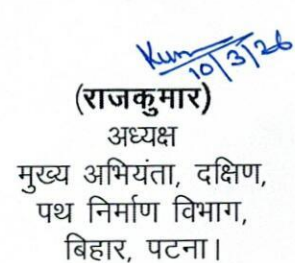 10/3/26
(राजकुमार)
अध्यक्ष
मुख्य अभियंता, दक्षिण,
पथ निर्माण विभाग,
बिहार, पटना।